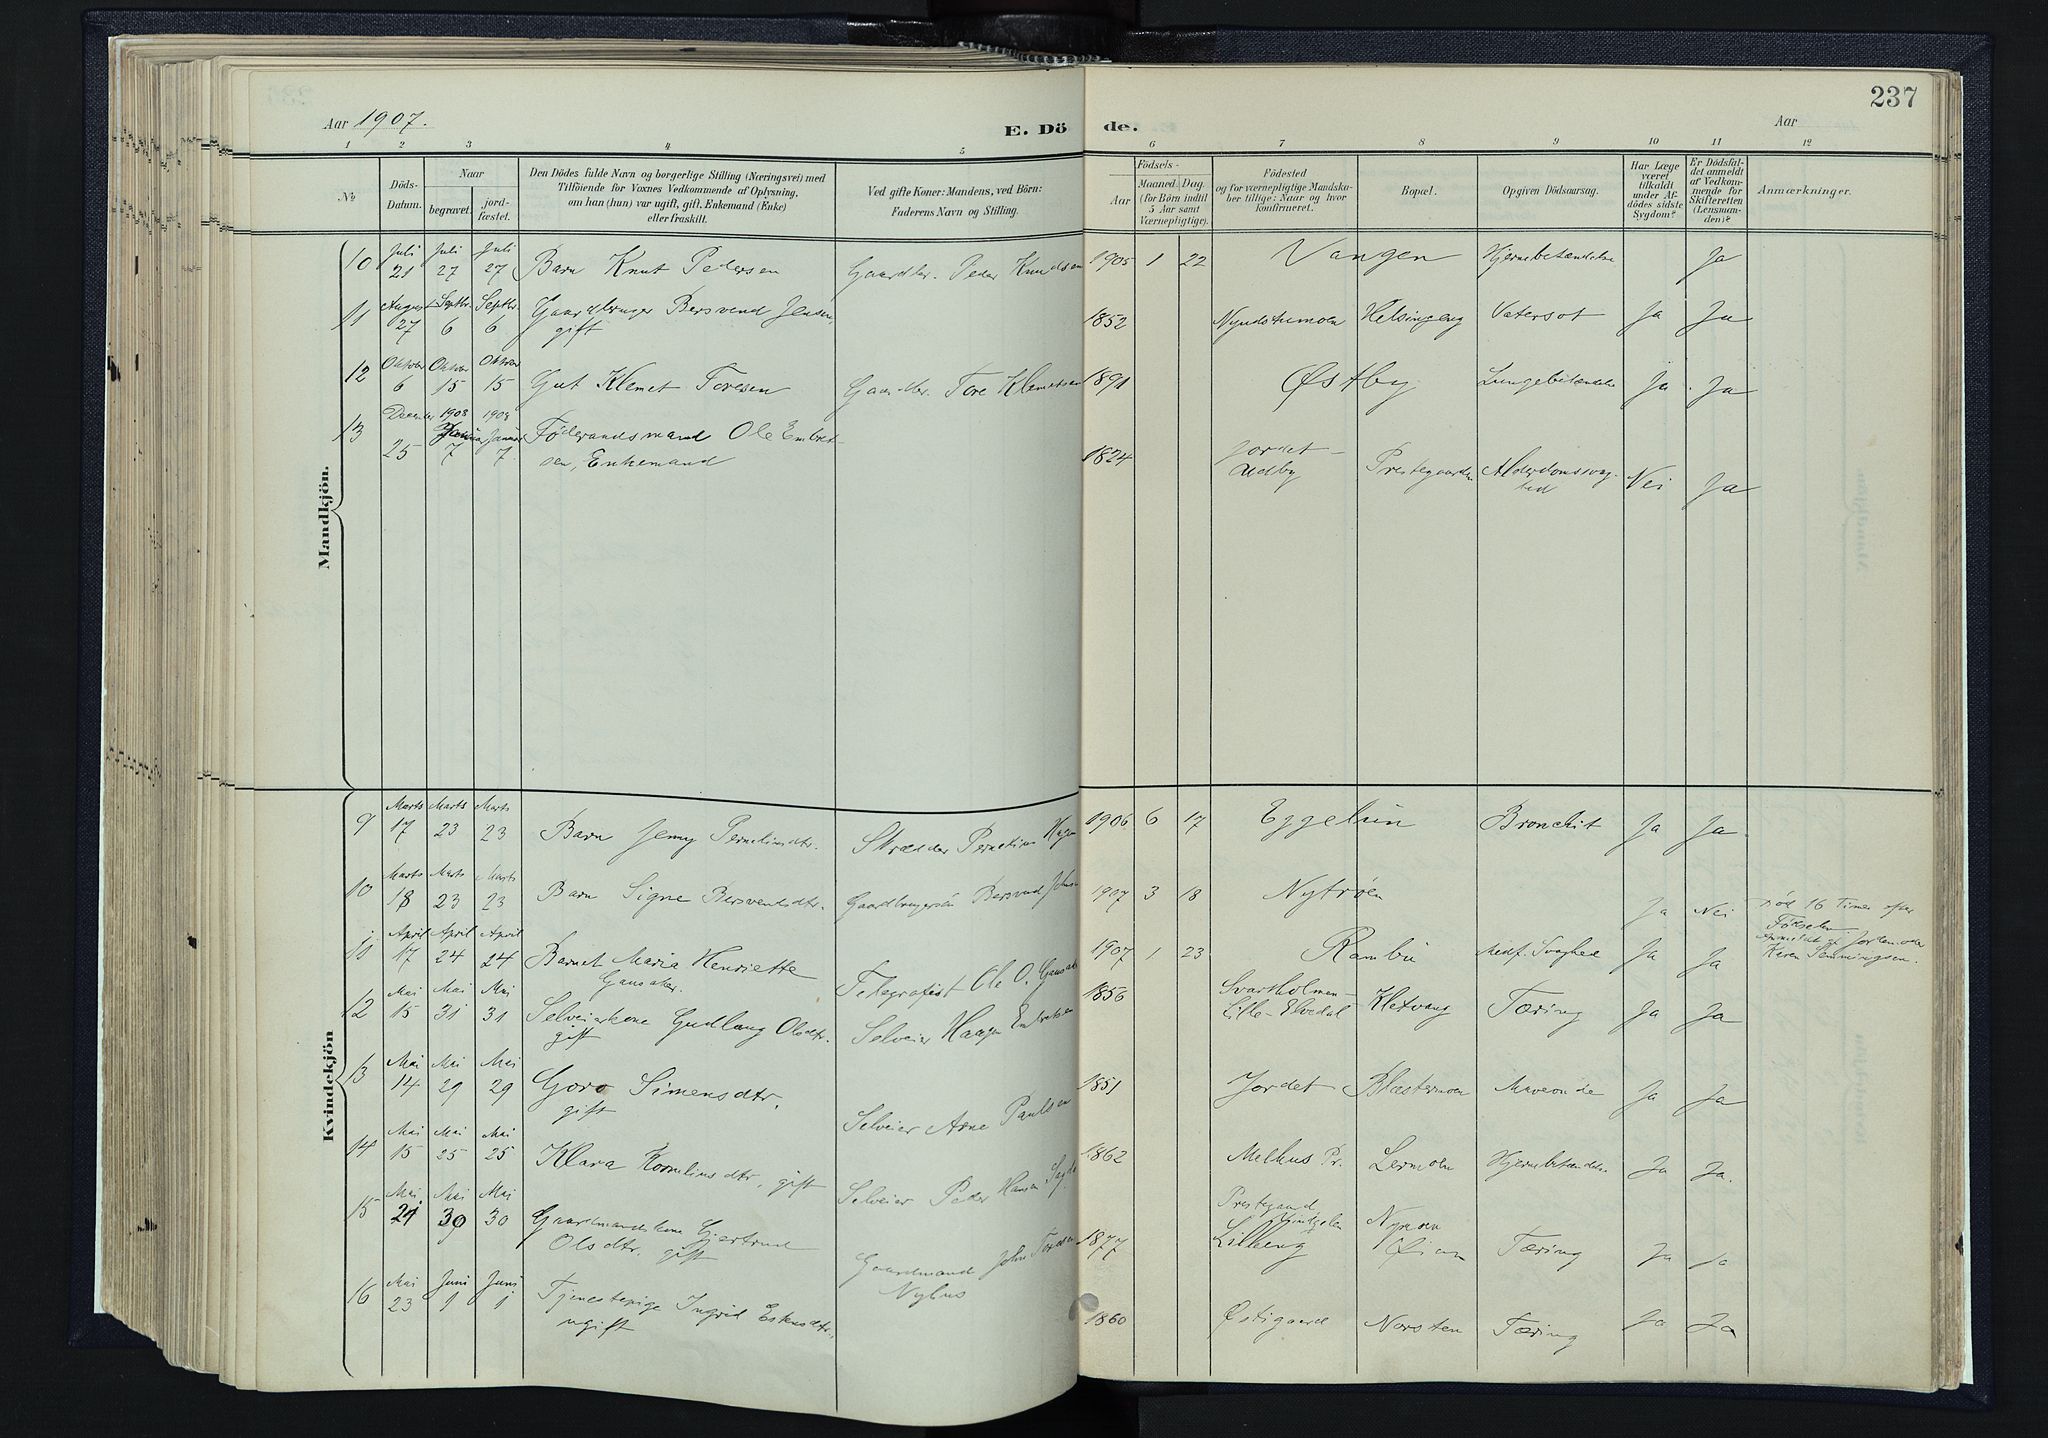 Aar 1907.
E. Dö de.
Aar
237
1 2 3 4 5 6 7 8 9 10 11 12
№
Döds-Datum.
Naar
begravet.
jord-fæstet.
Den Dödes fulde Navn og borgerlige Stilling (Næringsvei) med
Tilföiende for Voxnes Vedkommende af Oplysning,
om han (hun) var ugift, gift, Enkemand (Enke)
eller fraskilt.
Ved gifte Koner: Mandens, ved Börn:
Faderens Navn og Stilling.
Födsels-
Aar
Maaned. Dag.
(for Börn indtil
5 Aar samt
Værnepligtige).
Födested
og for værnepligtige Mandska-
ber tillige: Naar og hvor
konfirmeret.
Bopæl.
Opgiven Dödsaarsag.
Har Læge
været
tilkaldt
under Af-
dödes sidste
Sygdom?
Er Dödsfal-
det anmeldt
af Vedkom-
mende for
Skifteretten
(Lensman-
den)?
Anmærkninger.
Mandkjön.
10 Juli 21 Juli 27 Juli 27 Barn Knut Pedersen Gaardbr. Peder Knudsen 1905 1 22 Vangen Hjernebetændelse Ja
11 August 27 Septbr. 6 Septbr 6 Gaardbruger Bersvend Jensen, 1852 Helsingeng Vatersot Ja Ja
gift
12 Oktober 6 Oktober 15 Oktober 15 Gut Klemet Toresen Gaardbr. Tore Klemetsen 1891 Østby Lungebetændelse Ja Ja
13 December 25 1908 Januar 7 1908 Januar 7 Föderaadsmand Ole Embret- 1824 Jordet - Prestegaarden Alderdomssvag- Nei Ja
sen, Enkemand Udby hed
Kvindekjön
9 Marts 17 Marts 23 Marts 23 Barn Jenny Perneliusdtr. Skrædder Pernelius Hagen 1906 6 17 Eggebün Bronchit Ja Ja
10 Marts 18 Marts 23 Marts 23 Barn Signe Bersvendsdtr. Bersvend 1907 3 18 Nytrøen Ja Nei Död 16 Timer efter
Fødselen
anmeldt af Jordemoder
Karen Semmingsen.
11 April 17 April 24 April 24 Barnet Maria Henriette Telegrafist Ole O. Gaasaker 1907 1 23 Medf. Svaghed Ja Ja
Gaasaker.
12 Mai 15 Mai 31 Mai 31 Selveierkone Gudlaug Olsdtr. Selveier Haagen Embretsen 1856 Svartholmen - Kletvang Tæring Ja Ja
gift Lille-Elvedal
13 Mai 14 Mai 29 Mai 29 Goro Simensdtr, Selveier Arne Paulsen 1851 Jordet Blæstermoen Maveonde Ja Ja
gift
14 Mai 15 Mai 25 Mai 25 Klara Korneliusdtr, gift Selveier Peder Hansen 1862 Melhus Pr. Lermoen Hjernebetændelse Ja Ja.
15 Mai 21 Mai 30 Mai 30 Gaardmandskone Gjertrud Gaardmand John Toresen 1877 Lilleeng Nymoen Tæring Ja Ja
Olsdtr. gift Nyhus
16 Mai 23 Juni 1 Juni 1 Tjenestepige Ingrid Eskesdtr., 1860 Østigaard Norsten Tæring Ja Ja
ugift